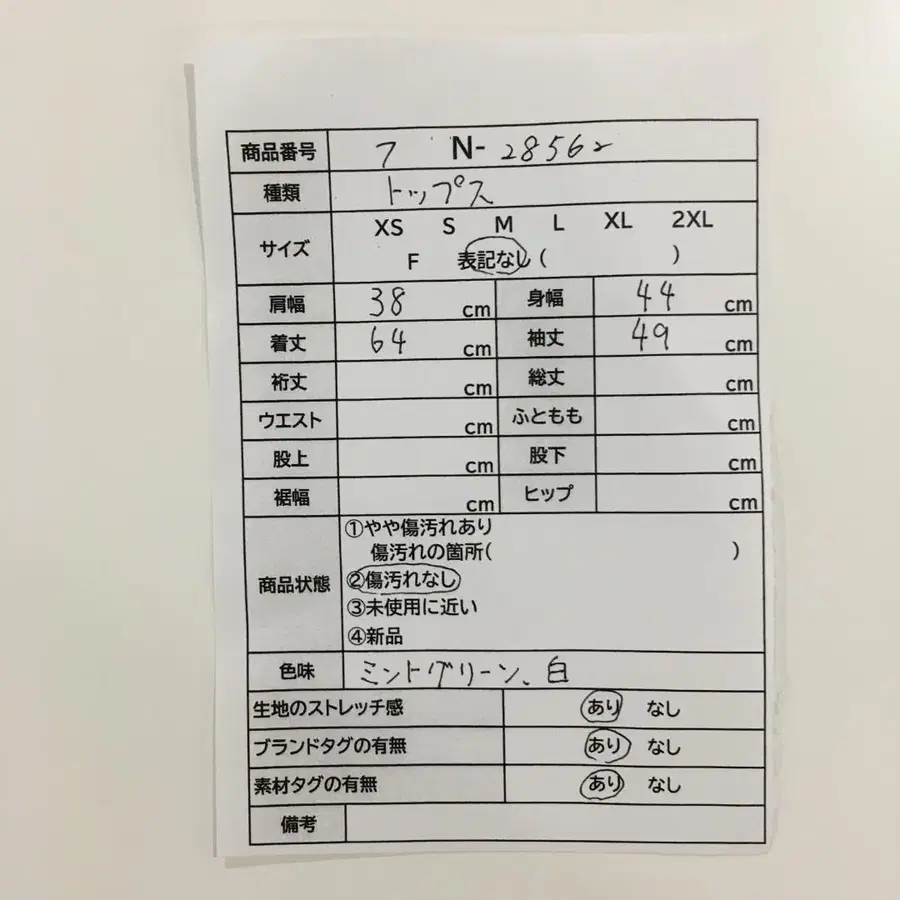 商品番号 フ N- 28562
種類 トップス
サイズ XS S M L XL 2XL
F 表記なし ( )
肩幅 38 cm 身幅 44 cm
着丈 64 cm 袖丈 49 cm
裄丈 cm 総丈 cm
ウエスト cm ふともも cm
股上 cm 股下 cm
裾幅 cm ヒップ cm
商品状態 ①やや傷汚れあり
傷汚れの箇所( )
②傷汚れなし
③未使用に近い
④新品
色味 ミントグリーン、白
生地のストレッチ感 あり なし
ブランドタグの有無 あり なし
素材タグの有無 あり なし
備考